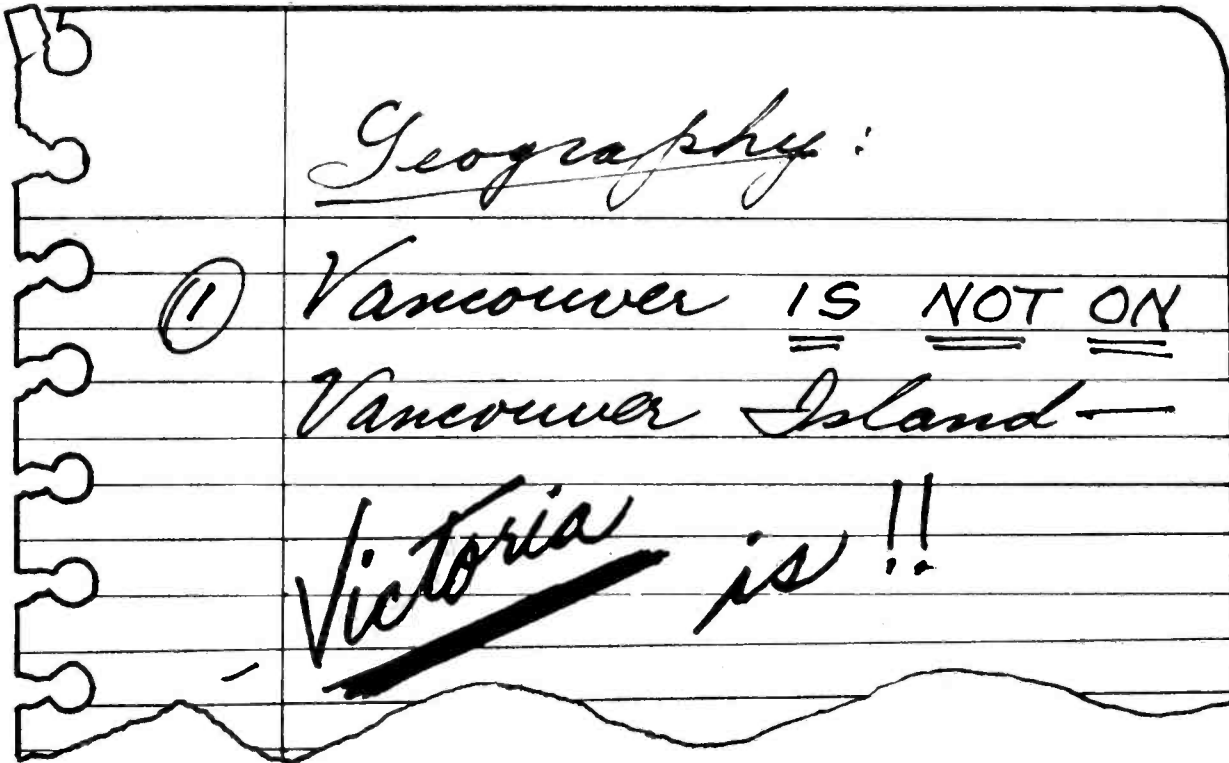 Geography:
① Vancouver IS NOT ON
Vancouver Island —
Victoria is!!